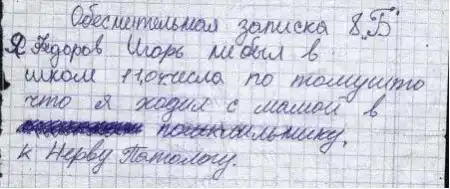 Обесните­льная записка 8 „Б"
Я Федоров Игорь небыл в
школе 11,0 числа по томушто
что я ходил с мамой в
к Нерву Потологу.